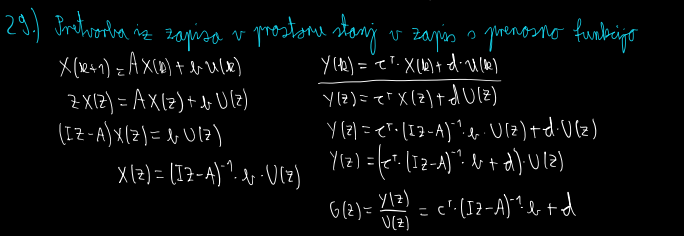 29.) Pretvorba iz zapisa v prostoru stanj v zapis s prenosno funkcijo
X(k+1) = AX(k) + b u(k)
zX(z) = AX(z) + b U(z)
(Iz-A)X(z) = b U(z)
X(z) = (Iz-A)⁻¹ · b · U(z)
Y(k) = cᵀ · X(k) + d · u(k)
Y(z) = cᵀ X(z) + d U(z)
Y(z) = cᵀ · (Iz-A)⁻¹ · b · U(z) + d · U(z)
Y(z) = (cᵀ · (Iz-A)⁻¹ · b + d) · U(z)
G(z) = Y(z)/U(z) = cᵀ · (Iz-A)⁻¹ · b + d